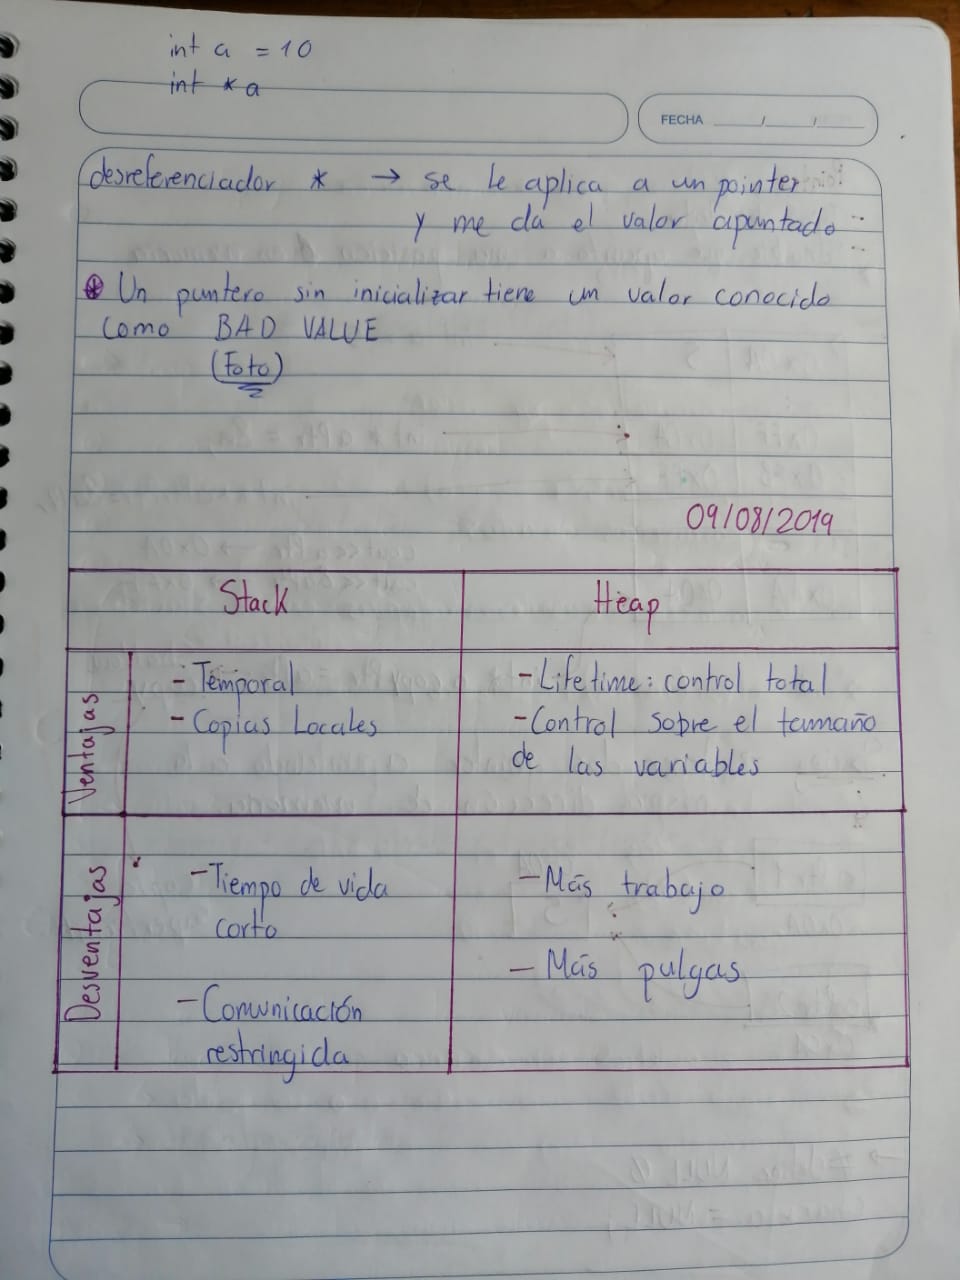 int a = 10
int * a
FECHA ____/____/____
desreferenciador * → se le aplica a un pointer
y me da el valor apuntado
* Un puntero sin inicializar tiene un valor conocido
como BAD VALUE
(Foto)
09/08/2019
Stack Heap
Ventajas
- Temporal
- Copias Locales
- Lifetime: control total
- Control sobre el tamaño
de las variables
Desventajas
- Tiempo de vida
corto
- Comunicación
restringida
- Más trabajo
- Más pulgas